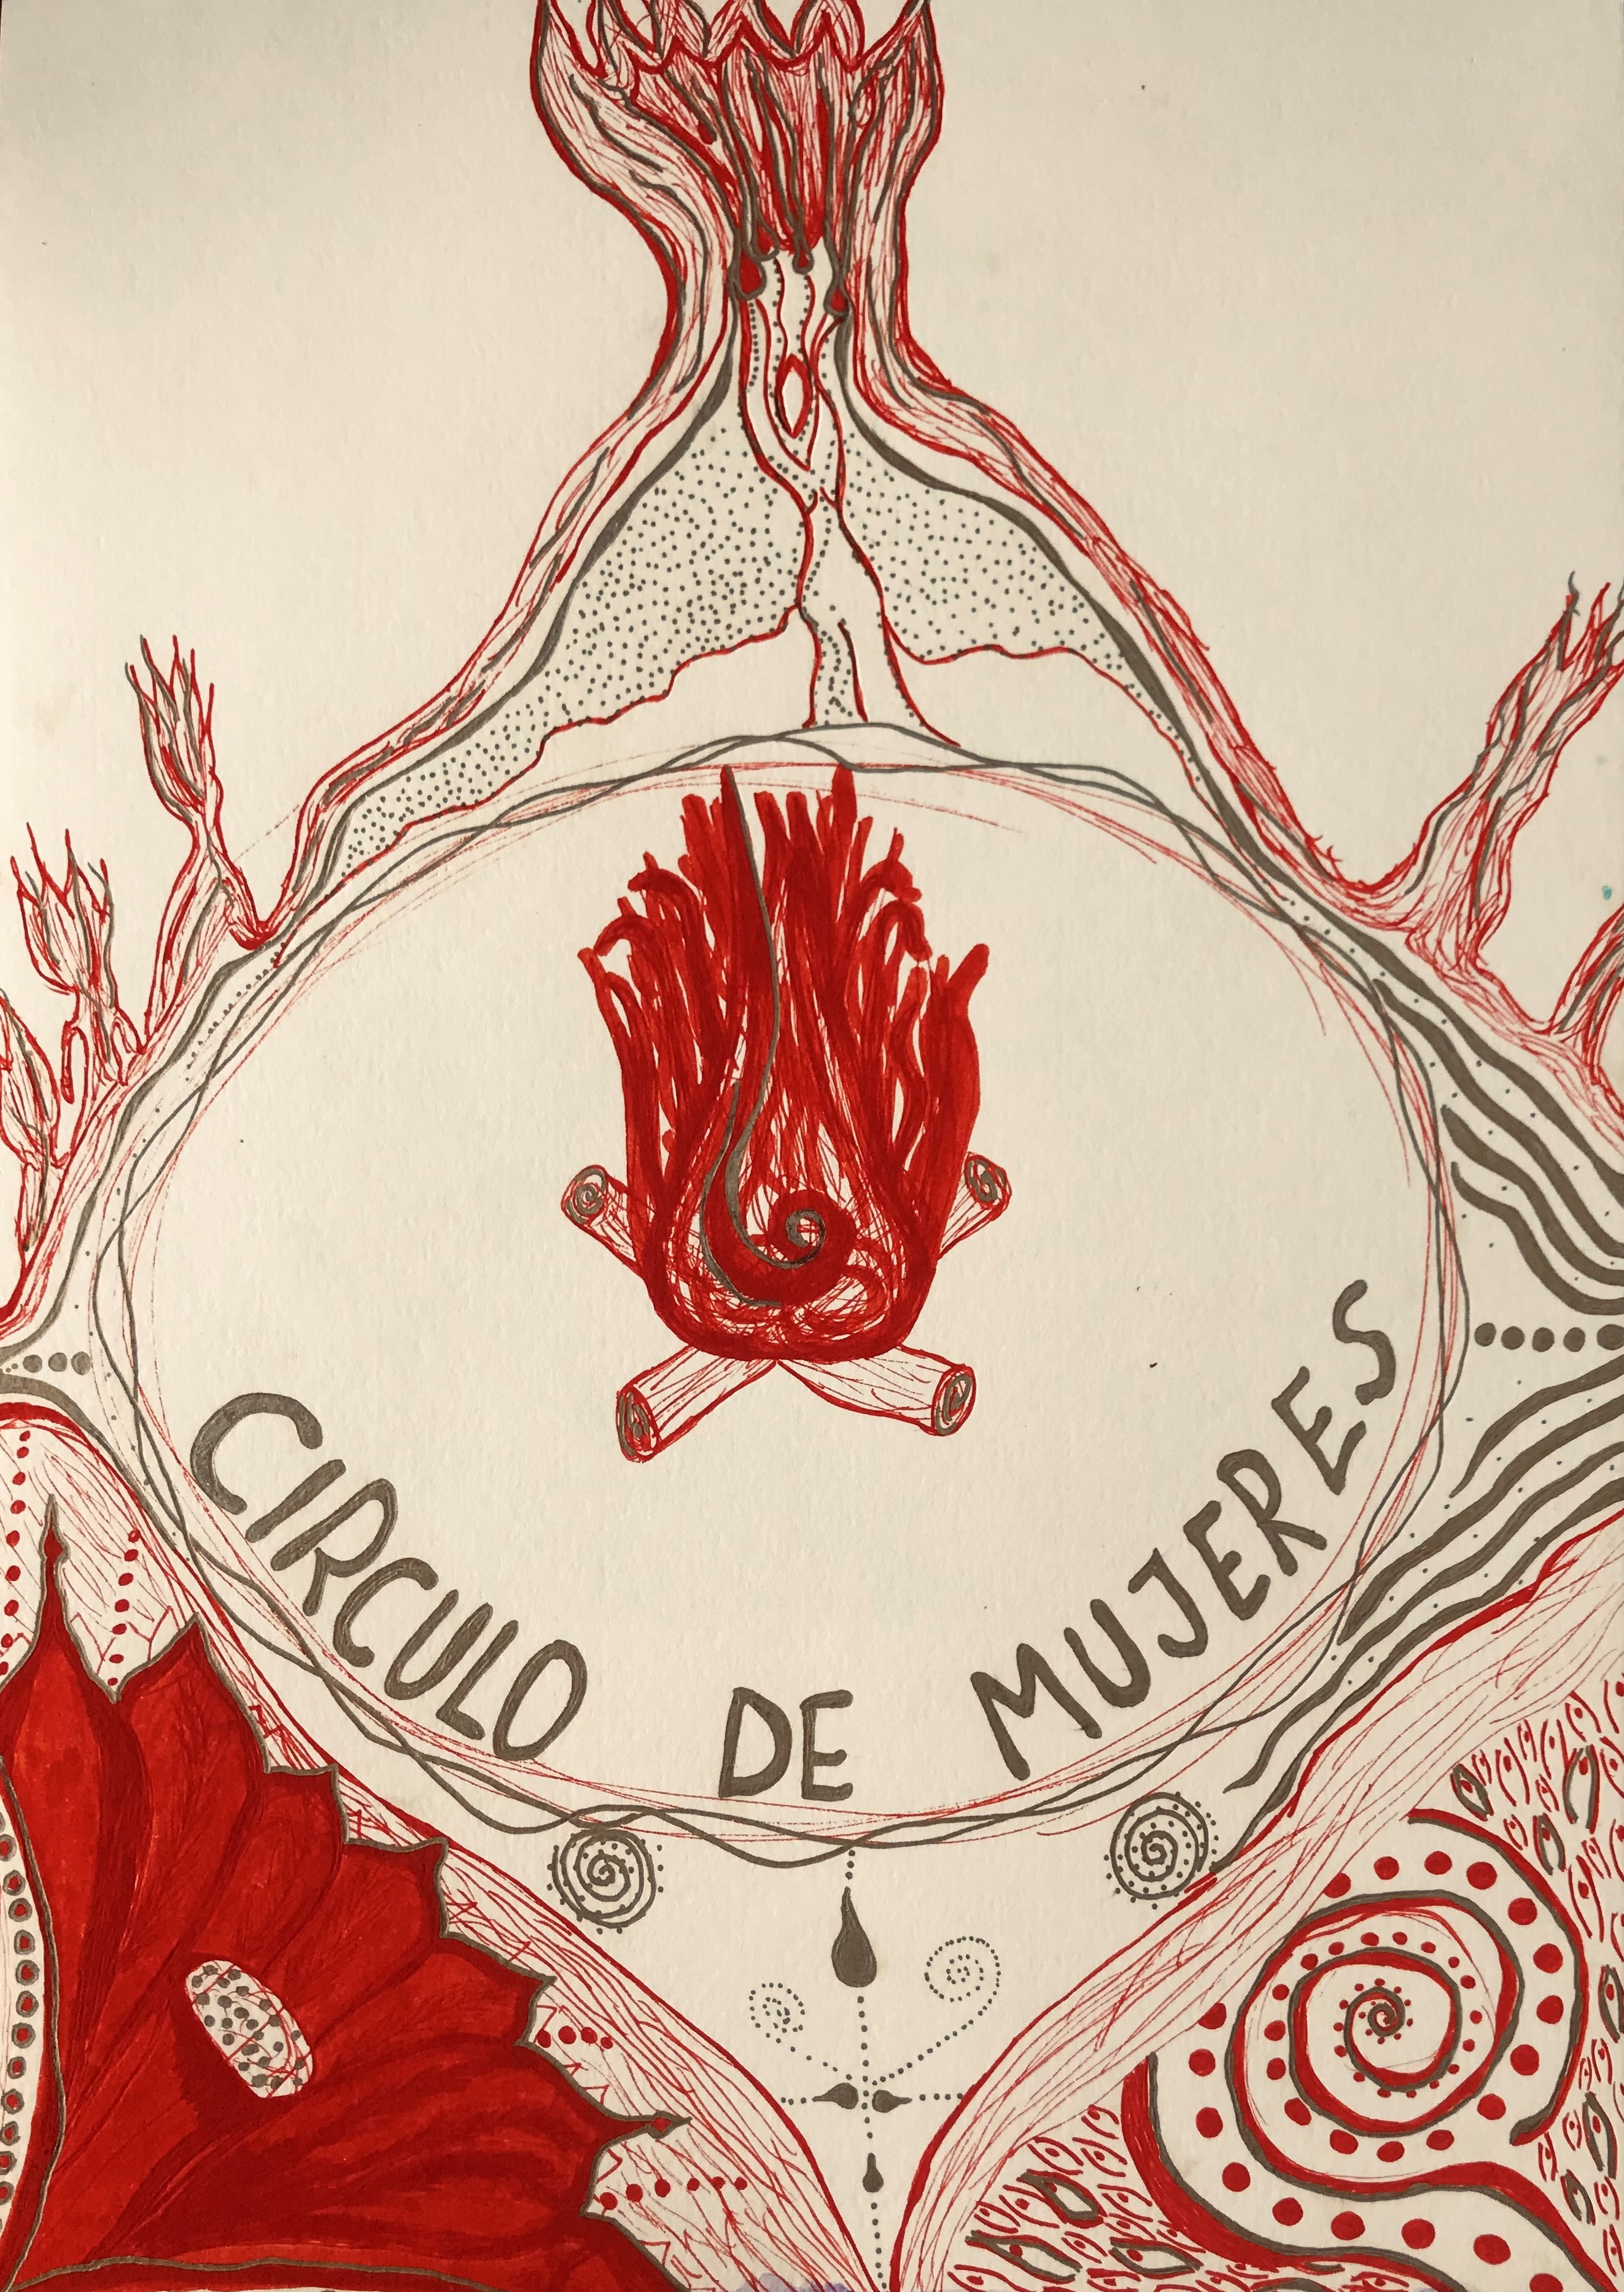 CIRCULO DE MUJERES